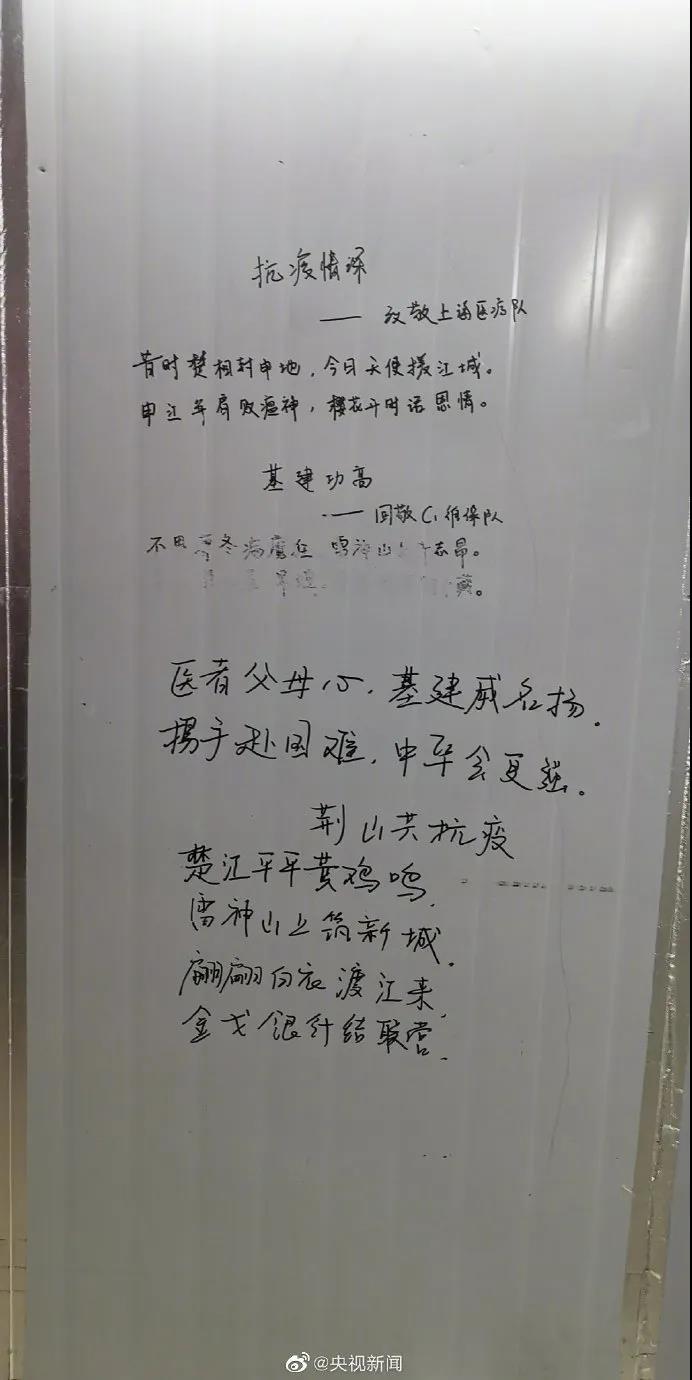 抗疫情深
—— 致敬上海医疗队
昔时楚相封申地，今日天使援江城。
申江年肩败瘟神，樱花开时话恩情。
基建功高
—— 回敬C1维保队
不畏 冬病魔狂 雷神山 志昂。
医者父母心，基建威名扬，
携手赴国难，中华会更强。
荆山共抗疫
楚江平平黄鸡鸣，
雷神山上筑新城，
翩翩白衣渡江来，
金戈银针结联营。
@央视新闻